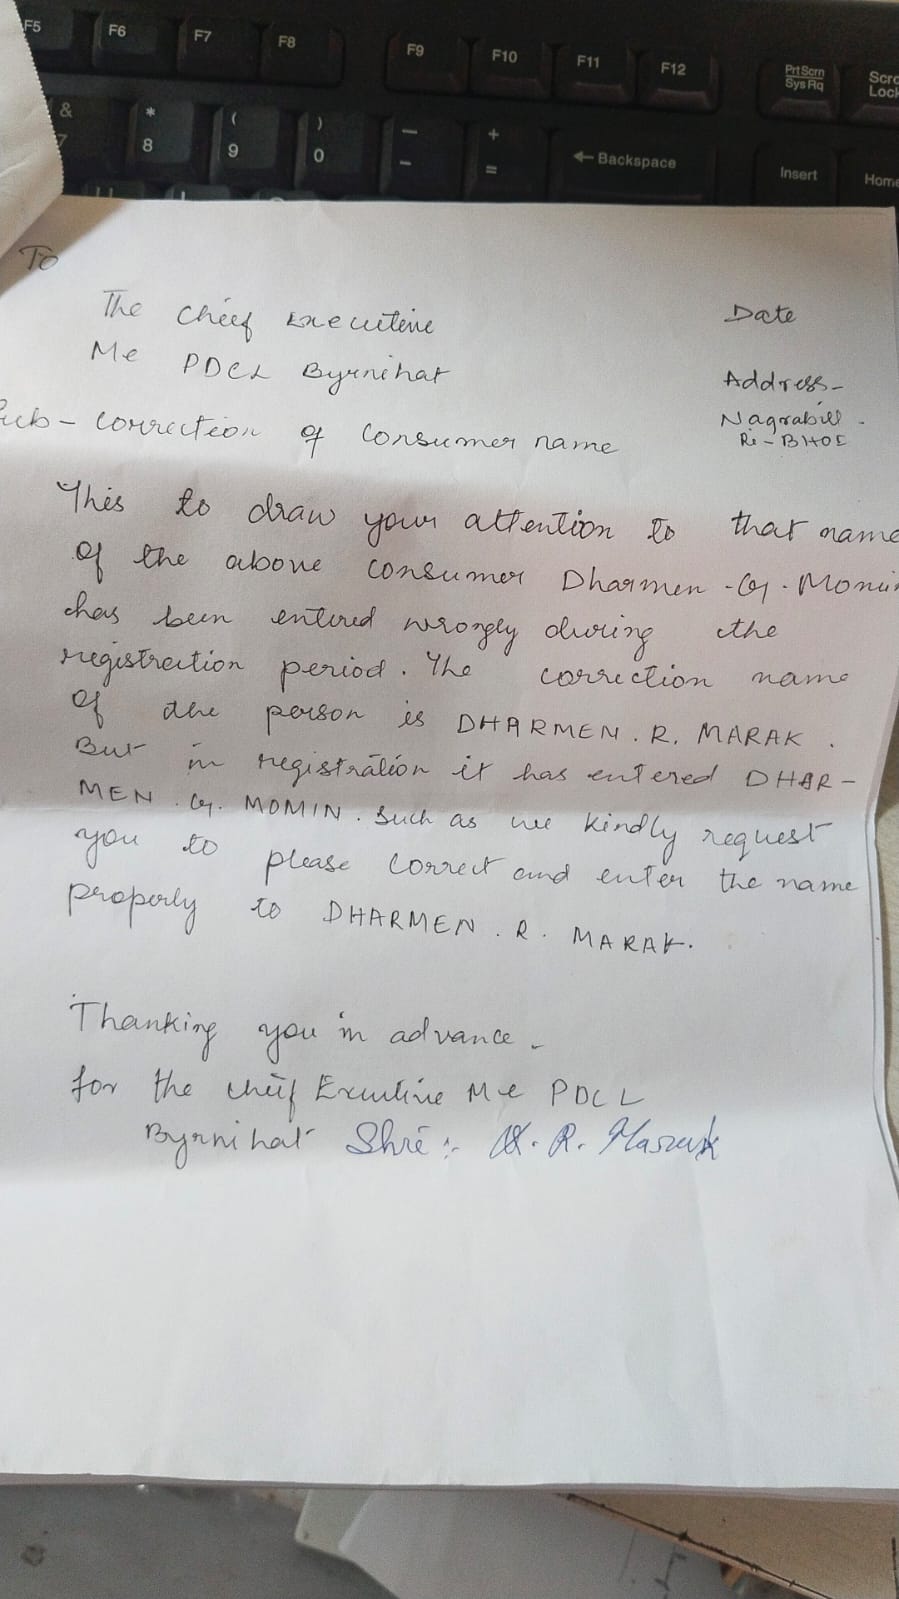 F5 F6 F7 F8 F9 F10 F11 F12 PrtScrn SysRq Scro Lock
& 7 * 8 ( 9 ) 0 — - + = ← Backspace Insert Home
To
The Cheif Executive
Date
Me PDCL Byrnihat
Address-
Nagrabill -
Ri-BHOI
Sub- Correction of Consumer name
This to draw your attention to that name
of the above consumer Dharmen -G. Momin
has been entired wrongly during the
registrection period. The correction name
of the person is DHARMEN. R. MARAK.
But in registration it has entered DHAR-
MEN . G. MOMIN. Such as we kindly request
you to please correct and enter the name
properly to DHARMEN . R. MARAK.
Thanking you in advance -
for the cheif Executive Me PDCL
Byrnihat Shri :- R. Marak